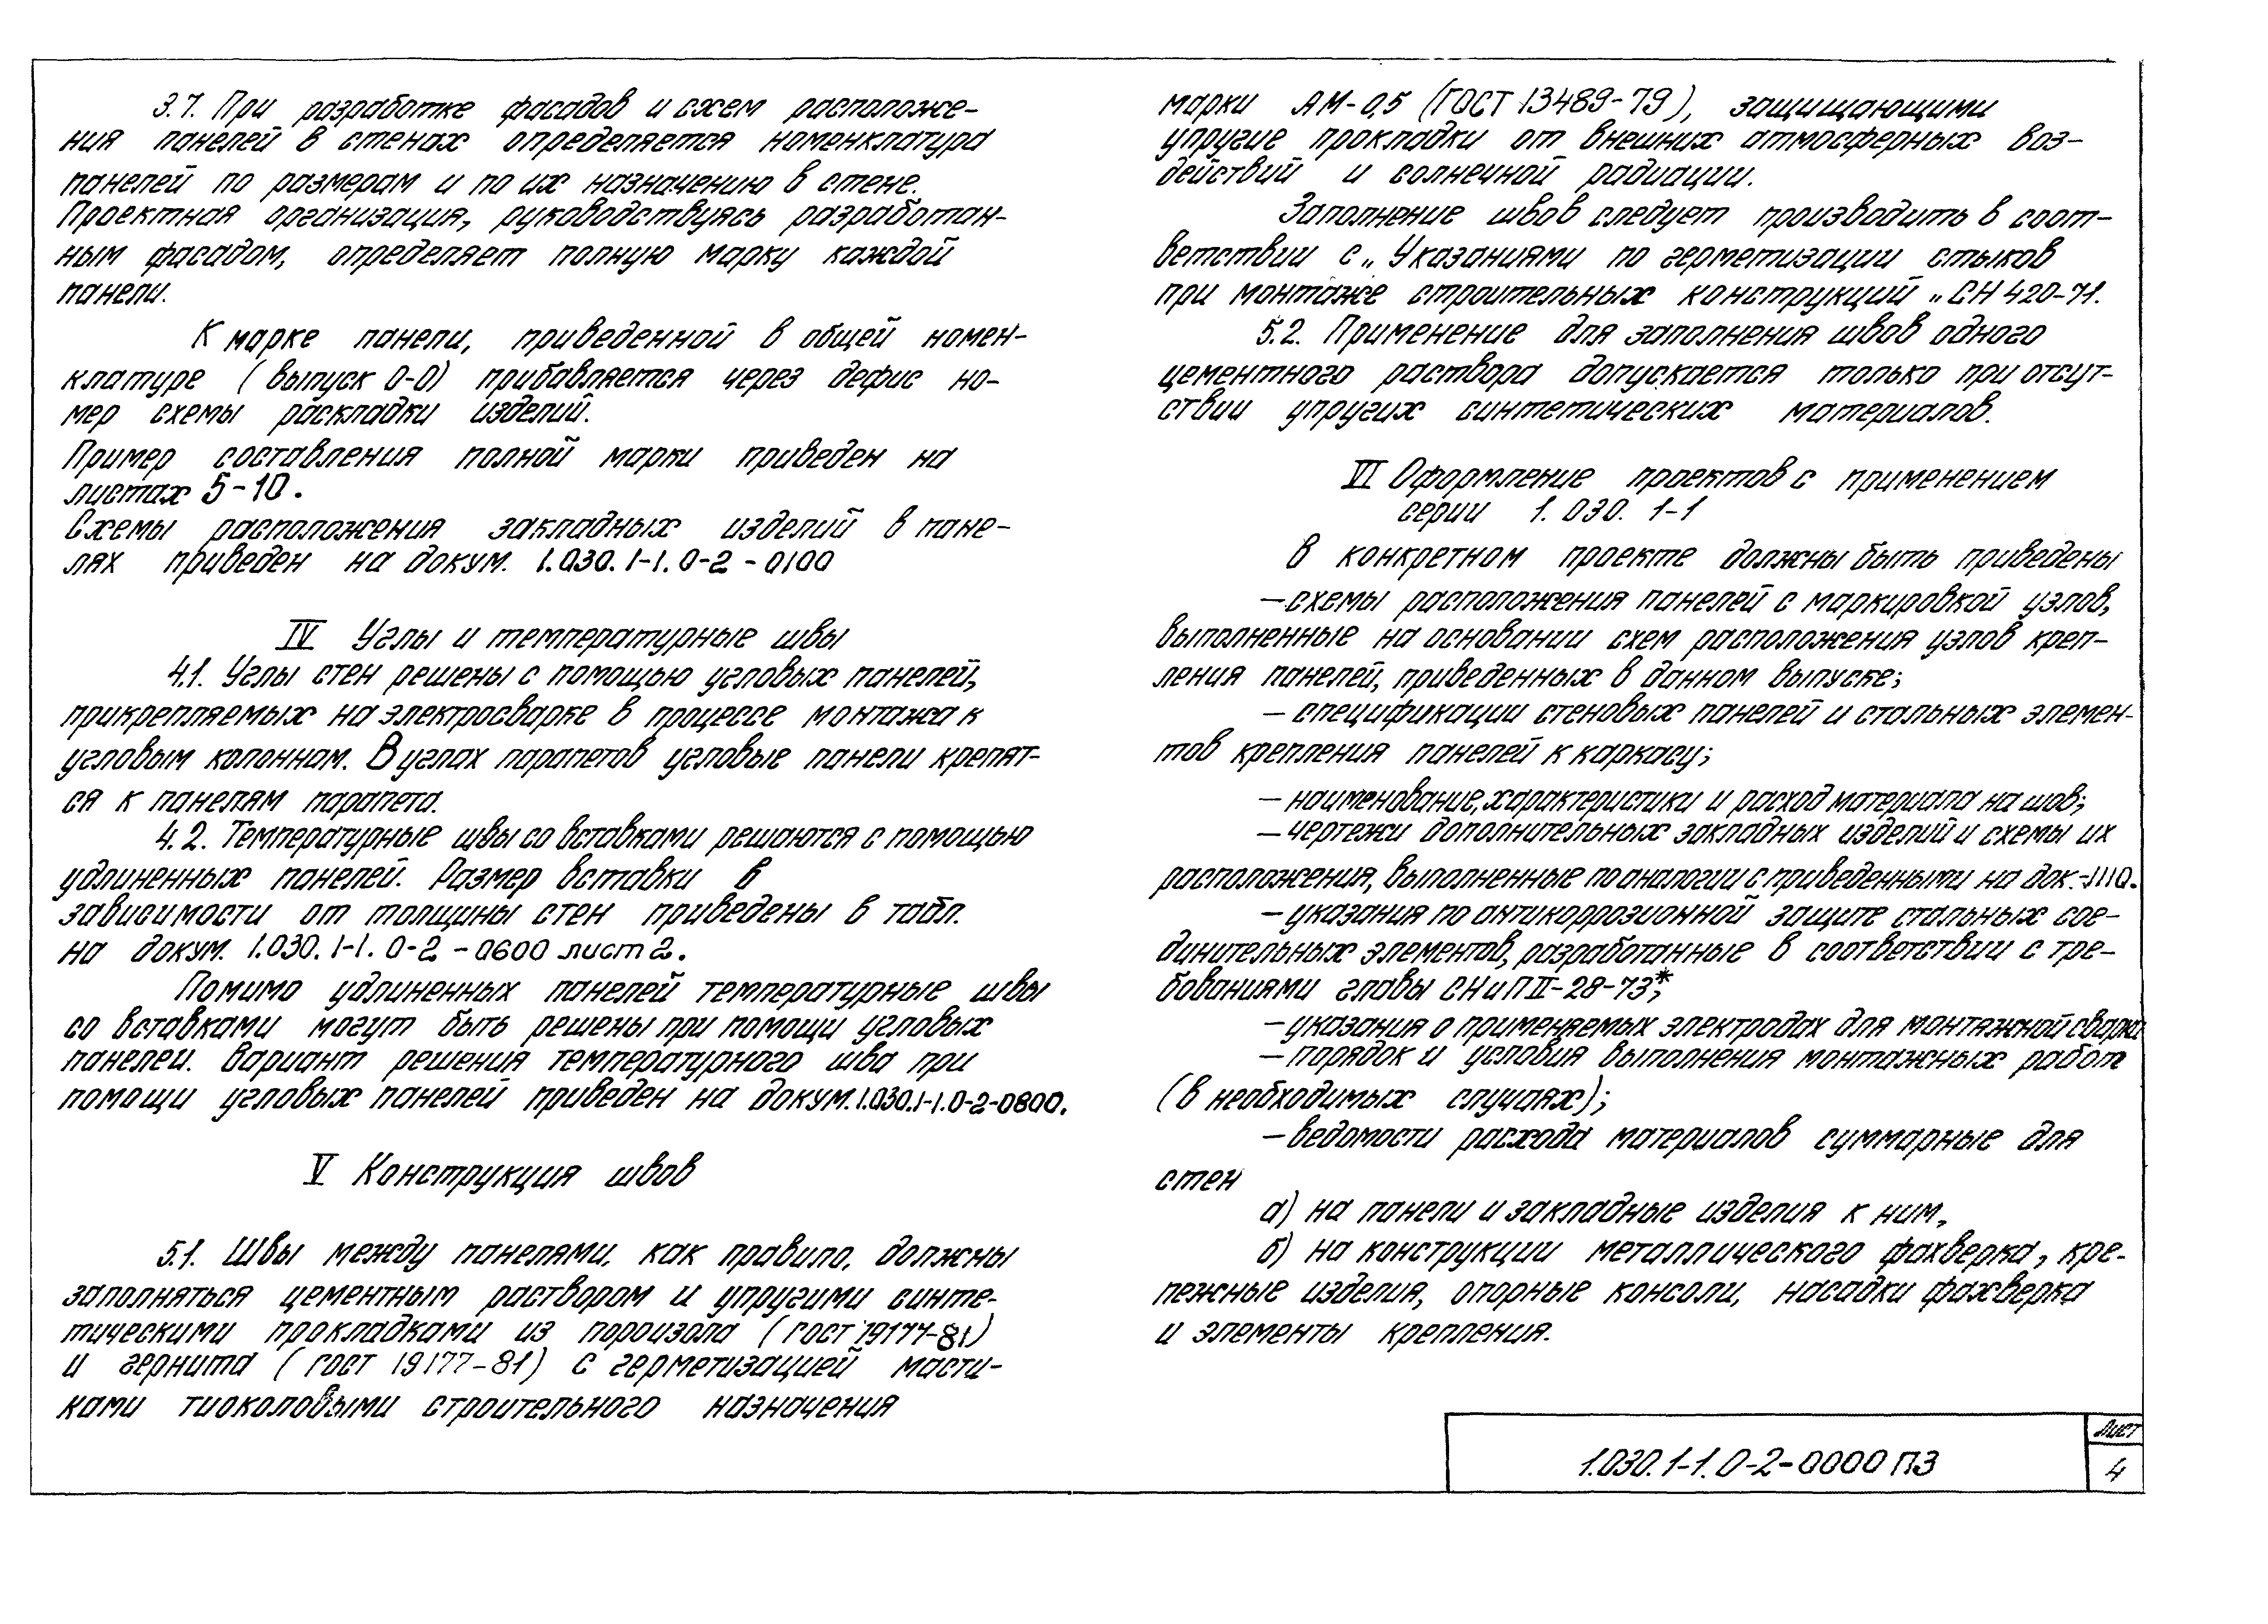 3.7. При разработке фасадов и схем расположе-
ния панелей в стенах определяется номенклатура
панелей по размерам и по их назначению в стене.
Проектная организация, руководствуясь разработан-
ным фасадом, определяет полную марку каждой
панели.
К марке панели, приведенной в общей номен-
клатуре (выпуск 0-0) прибавляется через дефис но-
мер схемы раскладки изделий.
Пример составления полной марки приведен на
листах 5-10.
Схемы расположения закладных изделий в пане-
лях приведен на докум. 1.030.1-1.0-2-0100
IV Углы и температурные швы
4.1. Углы стен решены с помощью угловых панелей,
прикрепляемых на электросварке в процессе монтажа к
угловым колоннам. В углах парапетов угловые панели крепят-
ся к панелям парапета.
4.2. Температурные швы со вставками решаются с помощью
удлиненных панелей. Размер вставки в
зависимости от толщины стен приведены в табл.
на докум. 1.030.1-1.0-2-0600 лист 2.
Помимо удлиненных панелей температурные швы
со вставками могут быть решены при помощи угловых
панелей. Вариант решения температурного шва при
помощи угловых панелей приведен на докум. 1.030.1-1.0-2-0800.
V Конструкция швов
5.1. Швы между панелями, как правило, должны
заполняться цементным раствором и упругими синте-
тическими прокладками из пороизола (ГОСТ 19177-81)
и гернита (ГОСТ 19177-81) с герметизацией масти-
ками тиоколовыми строительного назначения
марки АМ-0,5 (ГОСТ 13489-79), защищающими
упругие прокладки от внешних атмосферных воз-
действий и солнечной радиации.
Заполнение швов следует производить в соот-
ветствии с „Указаниями по герметизации стыков
при монтаже строительных конструкций„ СН 420-71.
5.2. Применение для заполнения швов одного
цементного раствора допускается только при отсут-
ствии упругих синтетических материалов.
VI Оформление проектов с применением
серии 1.030.1-1
В конкретном проекте должны быть приведены
— схемы расположения панелей с маркировкой узлов,
выполненные на основании схем расположения узлов креп-
ления панелей, приведенных в данном выпуске;
— спецификации стеновых панелей и стальных элемен-
тов крепления панелей к каркасу;
— наименование, характеристики и расход материала на шов;
— чертежи дополнительных закладных изделий и схемы их
расположения, выполненные по аналогии с приведенными на док.-1110.
— указания по антикоррозионной защите стальных сое-
динительных элементов, разработанные в соответствии с тре-
бованиями главы СНиП II-28-73*;
— указания о применяемых электродах для монтажной сварки
— порядок и условия выполнения монтажных работ
(в необходимых случаях);
— ведомости расхода материалов суммарные для
стен
а) на панели и закладные изделия к ним,
б) на конструкции металлического фахверка, кре-
пежные изделия, опорные консоли, насадки фахверка
и элементы крепления.
1.030.1-1.0-2-0000 ПЗ
Лист
4